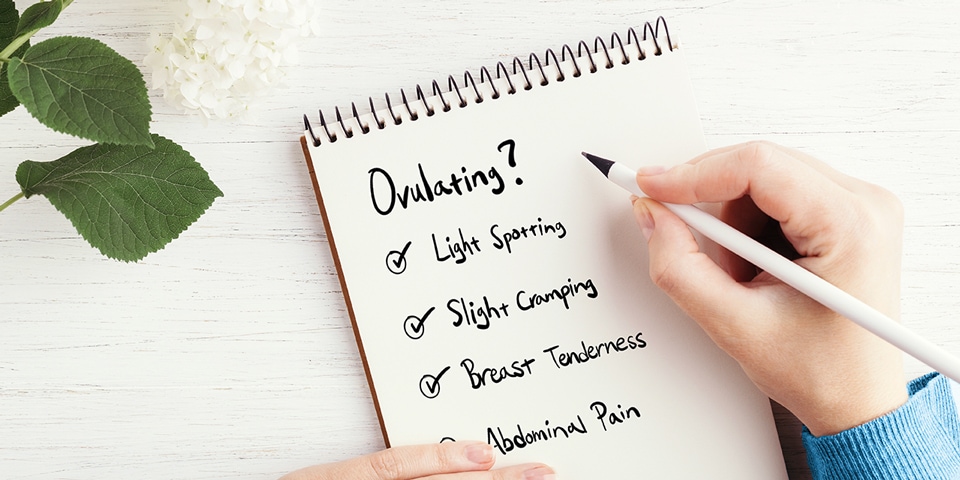 Ovulating?
Light Spotting
Slight Cramping
Breast Tenderness
Abdominal Pain